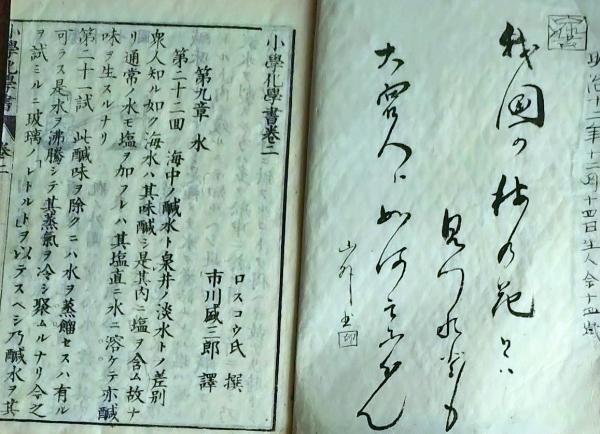 明治十二年十二月十四日生人
我国の梅の花とハ
見つれとも
大宮人ハ如何云ふらん
小學化學書卷二
ロスコウ氏 撰
市川盛三郎 譯
第九章 水
第二十二回 海中ノ鹹水ト泉井ノ淡水トノ差別
衆人知ル如ク海水ハ其味鹹シ是其内ニ塩ヲ含ム故ナ
リ通常ノ水モ塩ヲ加フレハ其塩直ニ水ニ溶ケテ亦鹹
味ヲ生スルナリ
第二十一試 此鹹味ヲ除クニハ水ヲ蒸餾セスハ有ル
可ラス是水ヲ沸騰シテ其蒸氣ヲ冷シ聚ムルナリ今之
ヲ試ミルニ玻璃ノ「レトルト」ヲ以テスヘシ乃鹹水ヲ其
小學化學書 卷二